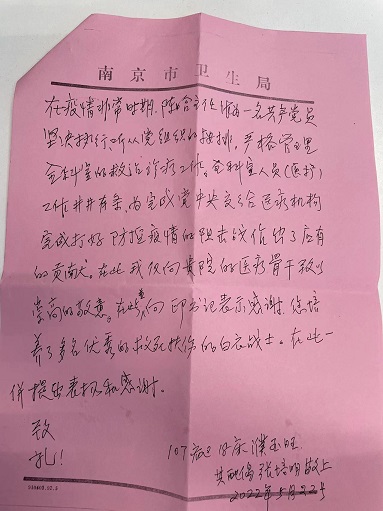 南京市卫生局
在疫情非常时期，陈主任作为一名共产党员
坚决执行听从党组织的安排，严格管理
全科室的救治诊疗工作。全科室人员（医护）
工作井井有条，为完成党中央交给医疗机构
完成打好防控疫情的阻击战作出了应有
的贡献。在此我仅向贵院的医疗骨干致以
崇高的敬意。在此向印书记表示感谢。您培
养了多名优秀的救死扶伤的白衣战士。在此一
併提出表扬和感谢。
致
礼！
107病区18床濮玉旺
其配偶张培明敬上
2022年5月22号